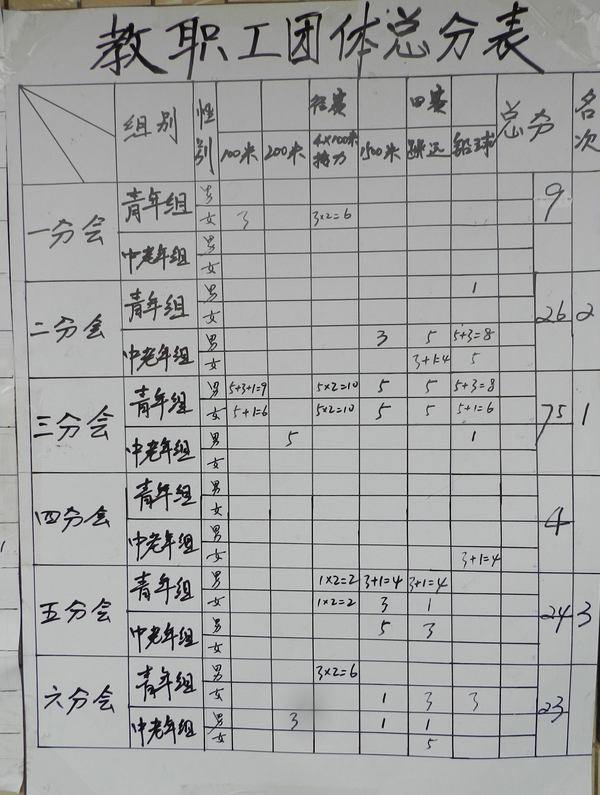 教职工团体总分表
组别 性别 径赛 田赛 总分 名次
100米 200米 4×100米接力 1500米 跳远 铅球
一分会 青年组 男 9
女 3 3×2=6
中老年组 男
女
二分会 青年组 男 1 26 2
女
中老年组 男 3 5 5+3=8
女 3+1=4 5
三分会 青年组 男 5+3+1=9 5×2=10 5 5 5+3=8 75 1
女 5+1=6 5×2=10 5 5 5+1=6
中老年组 男 5 1
女
四分会 青年组 男 4
女
中老年组 男
女 3+1=4
五分会 青年组 男 1×2=2 3+1=4 3+1=4 24 3
女 1×2=2 3 1
中老年组 男 5 3
女
六分会 青年组 男 3×2=6 23
女 1 3 3
中老年组 男 3 1 1
女 5